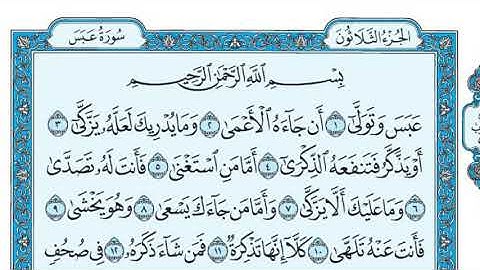 الجُزْءُ الثَّلَاثُونَ
سُورَةُ عَبَسَ
بِسْمِ اللَّهِ الرَّحْمَٰنِ الرَّحِيمِ
عَبَسَ وَتَوَلَّىٰٓ ١ أَن جَآءَهُ ٱلْأَعْمَىٰ ٢ وَمَا يُدْرِيكَ لَعَلَّهُۥ يَزَّكَّىٰٓ ٣
أَوْ يَذَّكَّرُ فَتَنفَعَهُ ٱلذِّكْرَىٰٓ ٤ أَمَّا مَنِ ٱسْتَغْنَىٰ ٥ فَأَنتَ لَهُۥ تَصَدَّىٰ
٦ وَمَا عَلَيْكَ أَلَّا يَزَّكَّىٰ ٧ وَأَمَّا مَن جَآءَكَ يَسْعَىٰ ٨ وَهُوَ يَخْشَىٰ ٩
فَأَنتَ عَنْهُ تَلَهَّىٰ ١٠ كَلَّآ إِنَّهَا تَذْكِرَةٌ ١١ فَمَن شَآءَ ذَكَرَهُۥ ١٢ فِى صُحُفٍ